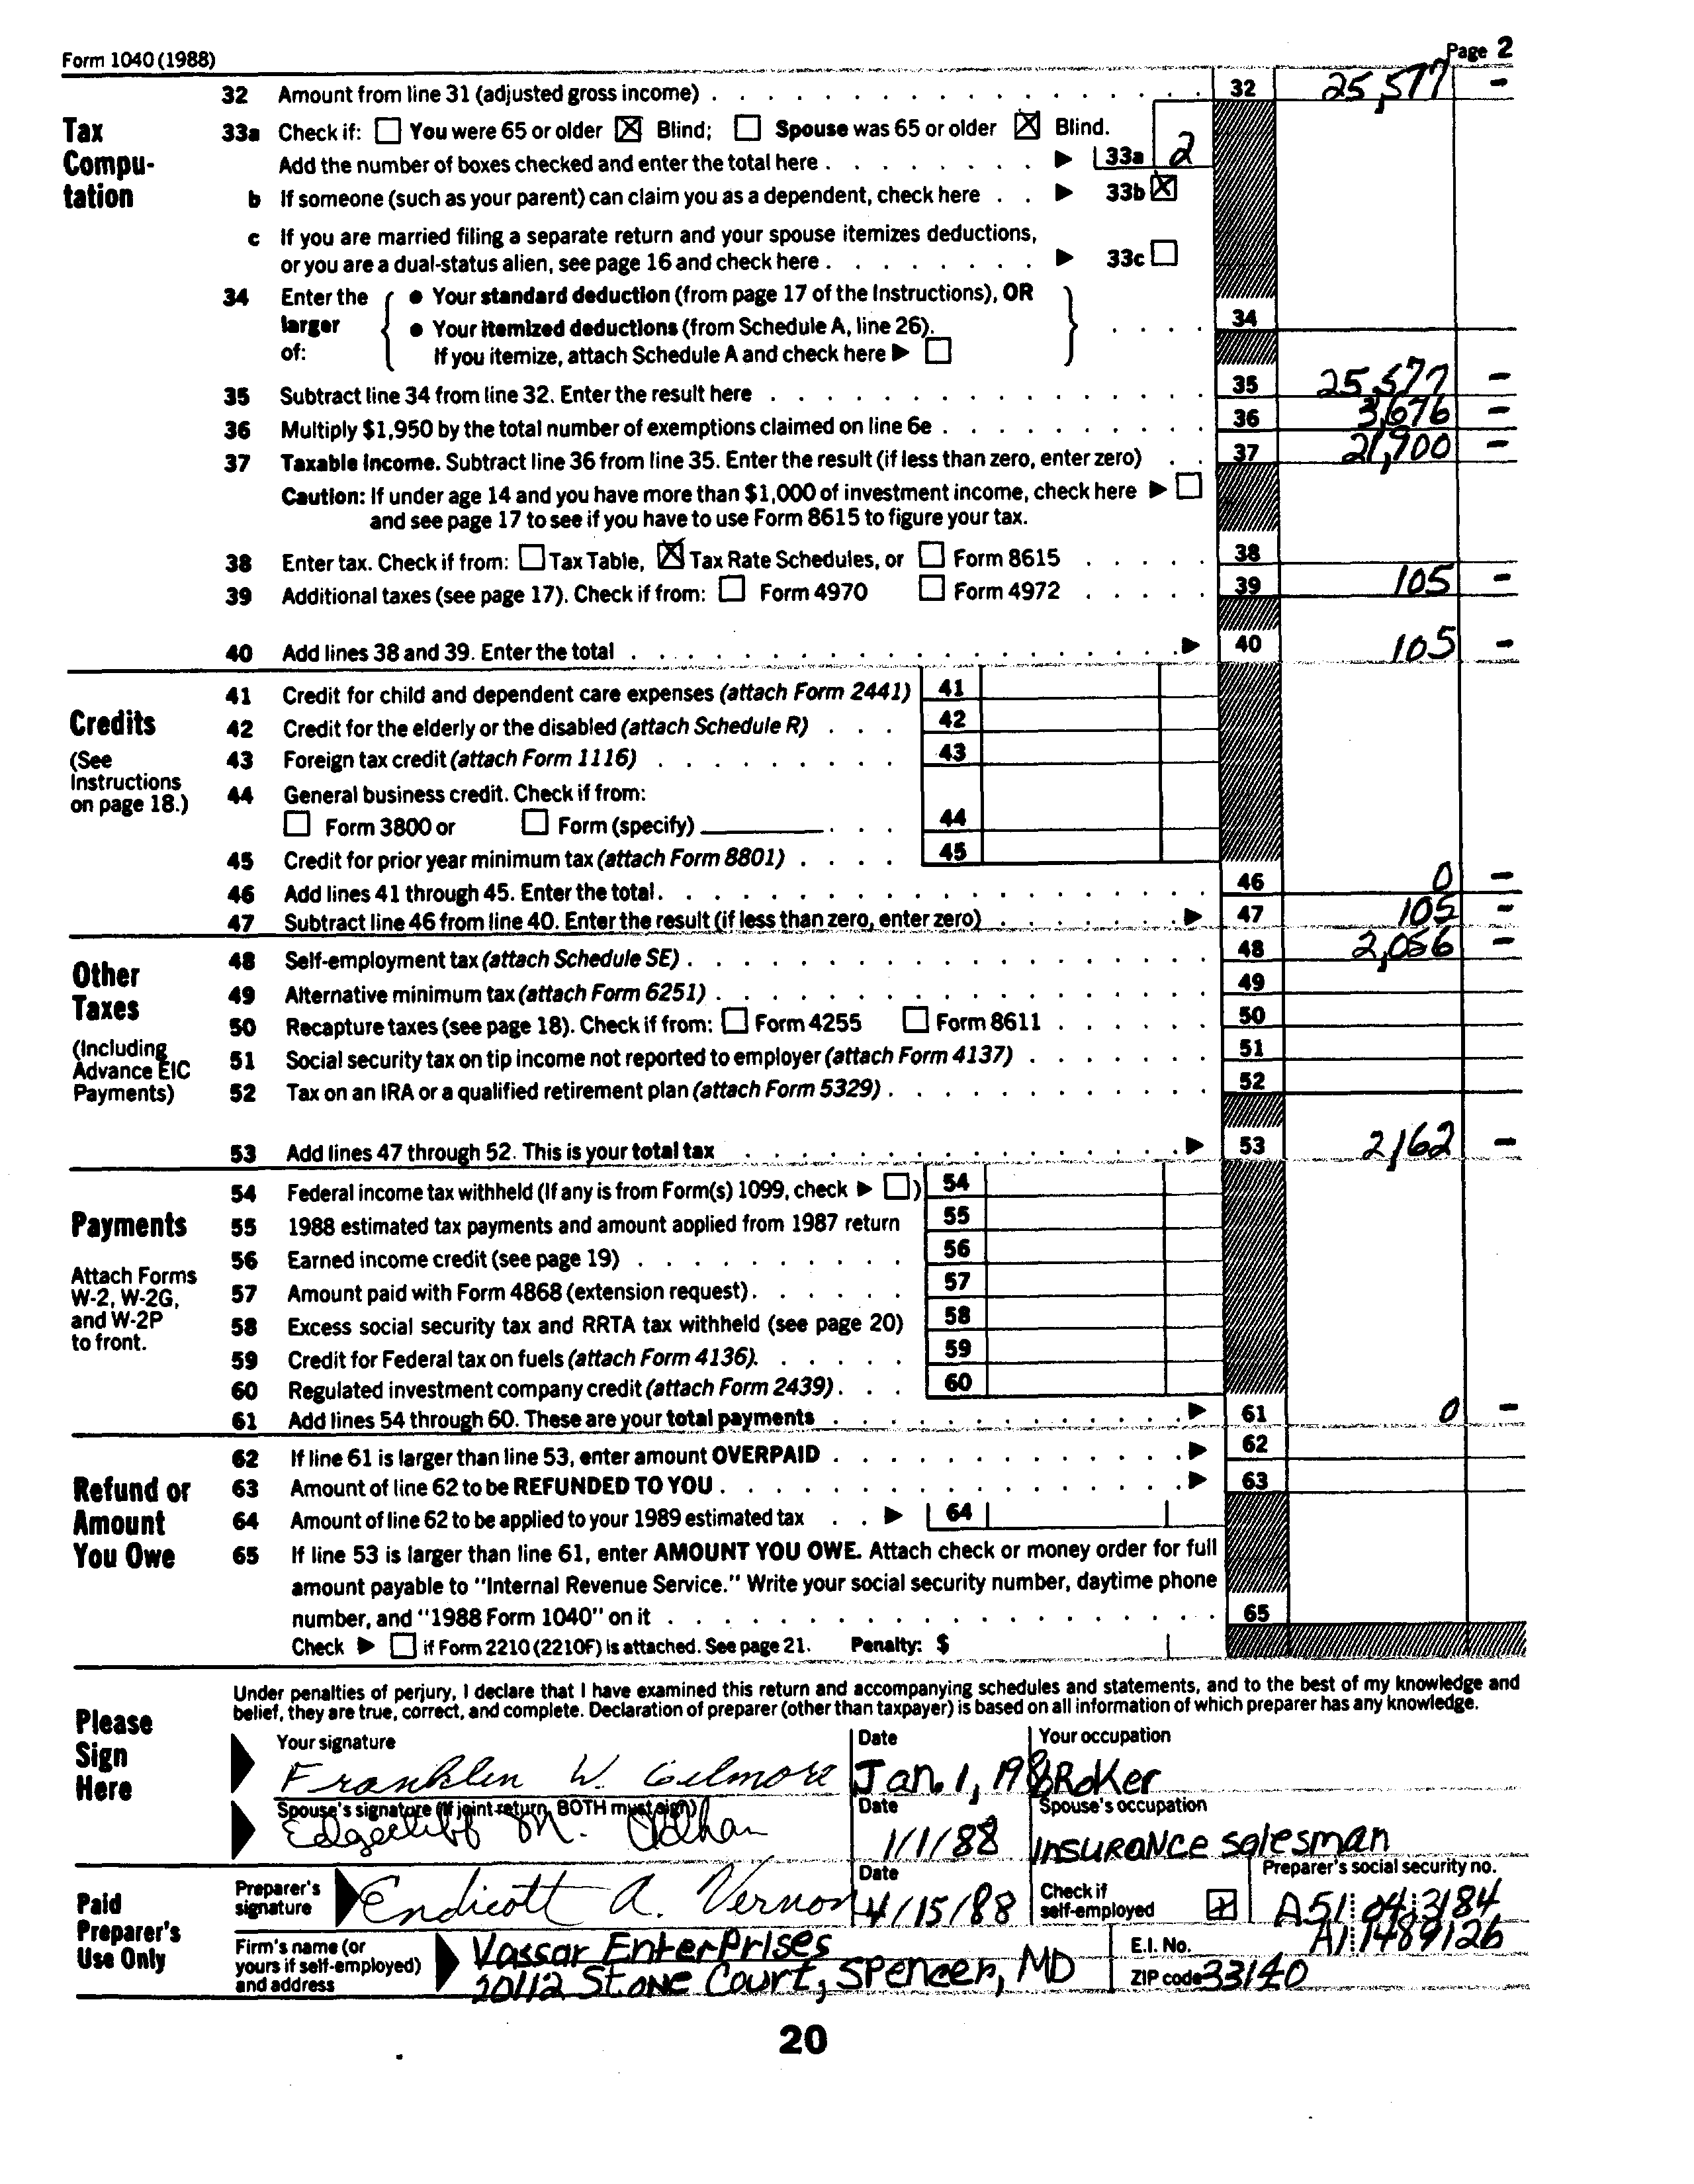 Form 1040 (1988) Page 2
32 Amount from line 31 (adjusted gross income) 32 25,577 -
Tax Compu-tation
33a Check if: ☐ You were 65 or older ☒ Blind; ☐ Spouse was 65 or older ☒ Blind.
Add the number of boxes checked and enter the total here ▶ 33a 2
b If someone (such as your parent) can claim you as a dependent, check here ▶ 33b ☒
c If you are married filing a separate return and your spouse itemizes deductions,
or you are a dual-status alien, see page 16 and check here ▶ 33c ☐
34 Enter the larger of:
• Your standard deduction (from page 17 of the Instructions), OR
• Your itemized deductions (from Schedule A, line 26).
If you itemize, attach Schedule A and check here ▶ ☐
34
35 Subtract line 34 from line 32. Enter the result here 35 25,577 -
36 Multiply $1,950 by the total number of exemptions claimed on line 6e 36 3,676 -
37 Taxable income. Subtract line 36 from line 35. Enter the result (if less than zero, enter zero) 37 21,900 -
Caution: If under age 14 and you have more than $1,000 of investment income, check here ▶ ☐
and see page 17 to see if you have to use Form 8615 to figure your tax.
38 Enter tax. Check if from: ☐ Tax Table, ☒ Tax Rate Schedules, or ☐ Form 8615 38
39 Additional taxes (see page 17). Check if from: ☐ Form 4970 ☐ Form 4972 39 105 -
40 Add lines 38 and 39. Enter the total ▶ 40 105 -
Credits
(See Instructions on page 18.)
41 Credit for child and dependent care expenses (attach Form 2441) 41
42 Credit for the elderly or the disabled (attach Schedule R) 42
43 Foreign tax credit (attach Form 1116) 43
44 General business credit. Check if from:
☐ Form 3800 or ☐ Form (specify) 44
45 Credit for prior year minimum tax (attach Form 8801) 45
46 Add lines 41 through 45. Enter the total. 46 0 -
47 Subtract line 46 from line 40. Enter the result (if less than zero, enter zero) ▶ 47 105 -
Other Taxes
(Including Advance EIC Payments)
48 Self-employment tax (attach Schedule SE) 48 2,056 -
49 Alternative minimum tax (attach Form 6251) 49
50 Recapture taxes (see page 18). Check if from: ☐ Form 4255 ☐ Form 8611 50
51 Social security tax on tip income not reported to employer (attach Form 4137) 51
52 Tax on an IRA or a qualified retirement plan (attach Form 5329) 52
53 Add lines 47 through 52. This is your total tax ▶ 53 2,162 -
Payments
Attach Forms W-2, W-2G, and W-2P to front.
54 Federal income tax withheld (If any is from Form(s) 1099, check ▶ ☐) 54
55 1988 estimated tax payments and amount applied from 1987 return 55
56 Earned income credit (see page 19) 56
57 Amount paid with Form 4868 (extension request) 57
58 Excess social security tax and RRTA tax withheld (see page 20) 58
59 Credit for Federal tax on fuels (attach Form 4136). 59
60 Regulated investment company credit (attach Form 2439) 60
61 Add lines 54 through 60. These are your total payments ▶ 61 0 -
Refund or Amount You Owe
62 If line 61 is larger than line 53, enter amount OVERPAID ▶ 62
63 Amount of line 62 to be REFUNDED TO YOU ▶ 63
64 Amount of line 62 to be applied to your 1989 estimated tax ▶ 64
65 If line 53 is larger than line 61, enter AMOUNT YOU OWE. Attach check or money order for full
amount payable to "Internal Revenue Service." Write your social security number, daytime phone
number, and "1988 Form 1040" on it 65
Check ▶ ☐ if Form 2210 (2210F) is attached. See page 21. Penalty: $
Please Sign Here
Under penalties of perjury, I declare that I have examined this return and accompanying schedules and statements, and to the best of my knowledge and
belief, they are true, correct, and complete. Declaration of preparer (other than taxpayer) is based on all information of which preparer has any knowledge.
Your signature Date Your occupation
Franklen W. Gilmore Jan. 1, BRoKer
Spouse's signature (if joint return, BOTH must sign) Date Spouse's occupation
M. 1/1/88 INSURANCE Salesman
Paid Preparer's Use Only
Preparer's signature Endicott A. Vernon Date 4/15/88 Check if self-employed ☒ Preparer's social security no. A51 04 3184
Firm's name (or yours if self-employed) and address Vassar Enterprises E.I. No. A1 1489126
20112 Stone Court, Spencer, MD ZIP code 33140
20